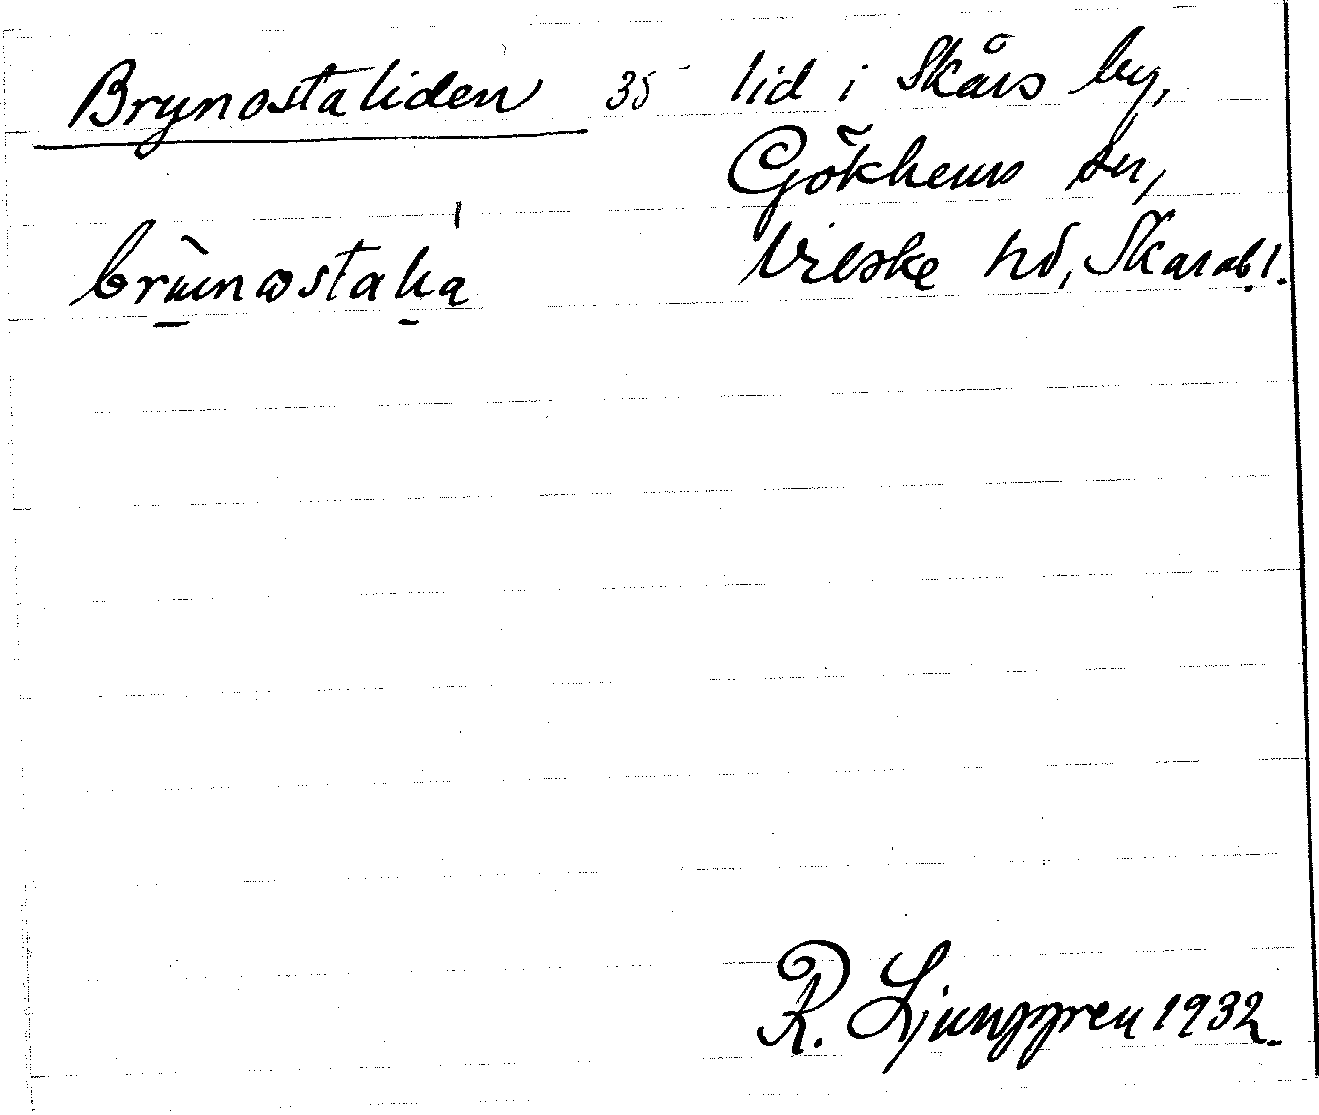 Brynostaliden 35 lid i Skårs by,
Gökhems sn,
Vilske hd, Skarab. l.
R. Ljunggren 1932.